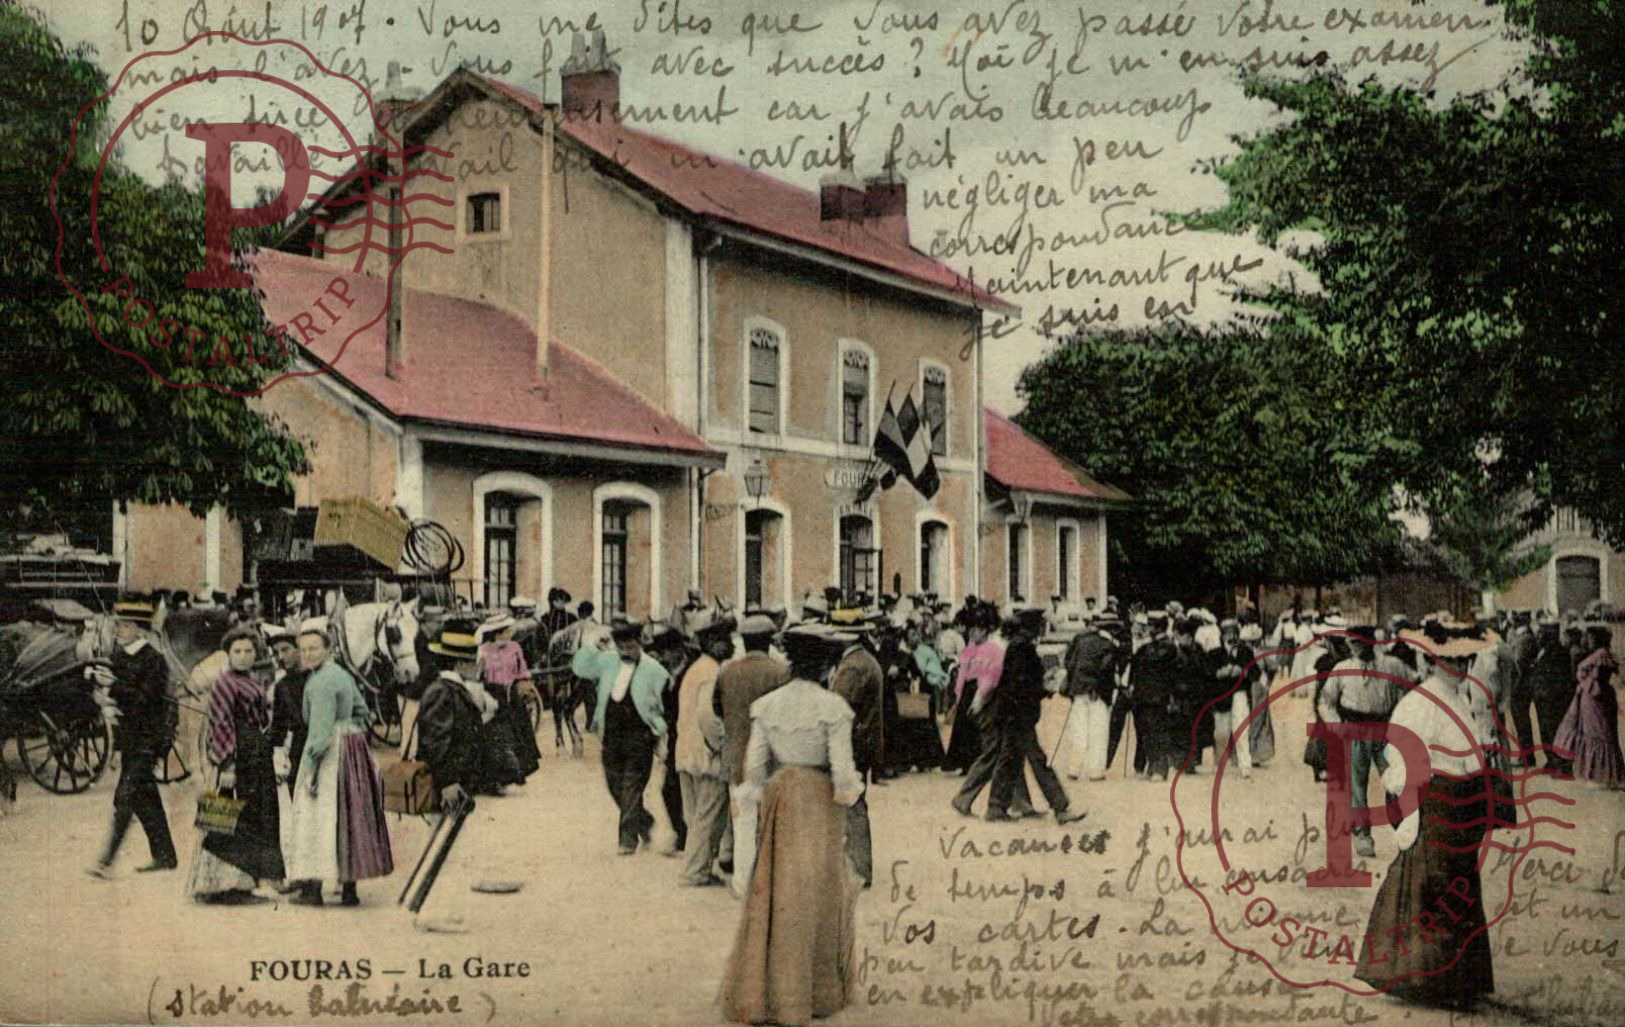 10 Août 1907. Vous me dites que vous avez passé votre examen
mais l'avez-vous fait avec succès ? Moi je m'en suis assez
bien tirée heureusement car j'avais beaucoup
travaillé. Travail qui m'avait fait un peu
négliger ma
correspondance
Maintenant que
je suis en
FOURAS
P
POSTALTRIP
vacances j'aurai plus
de temps à lui consacrer. Merci de
vos cartes. La mienne est un
peu tardive mais je viens de vous
en expliquer la cause.
Votre correspondante.
P
POSTALTRIP
FOURAS — La Gare
(Station balnéaire)